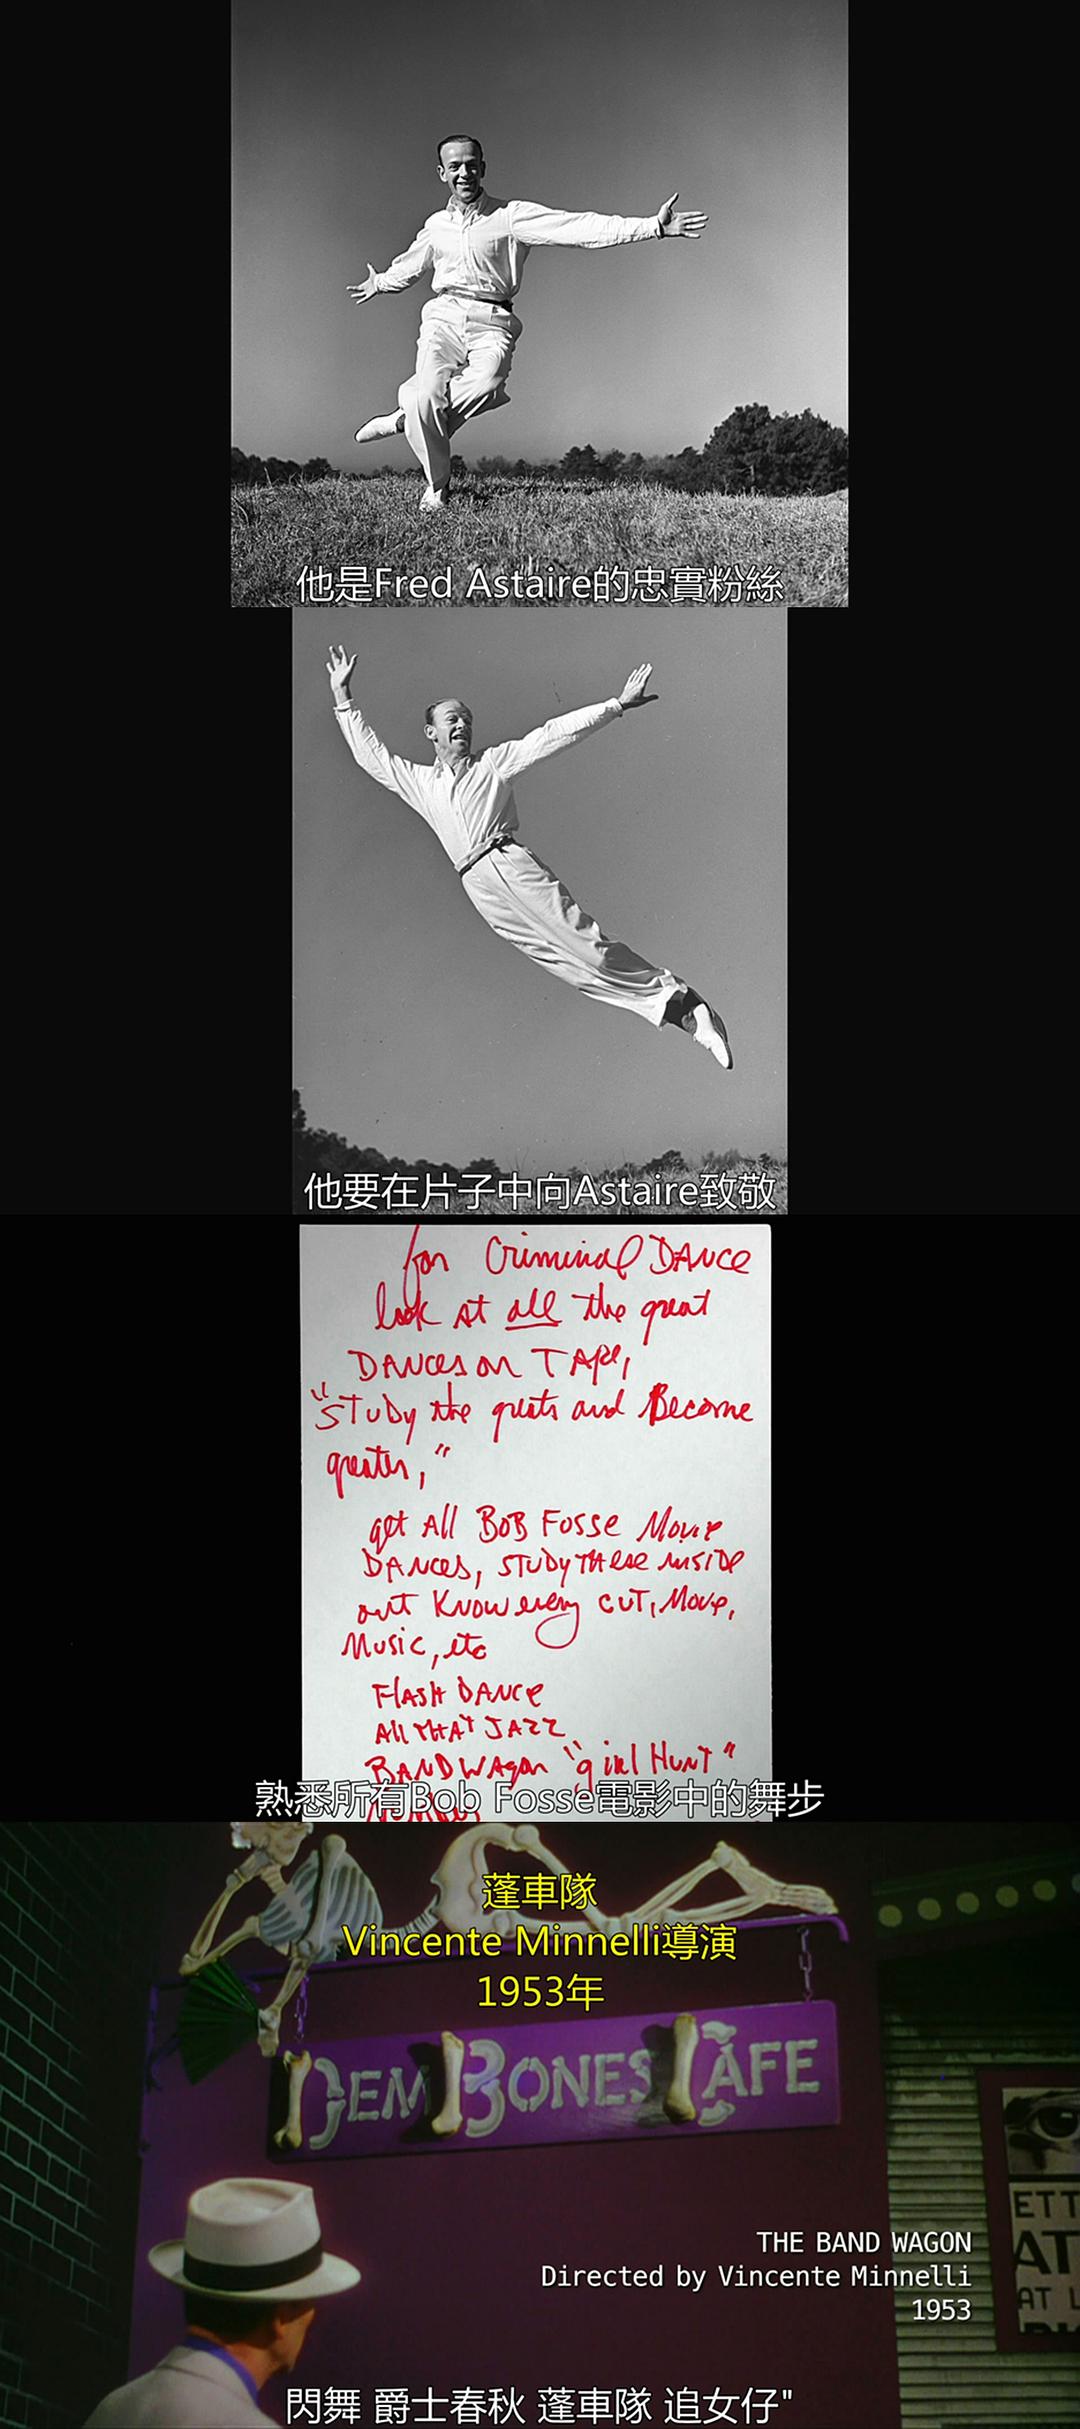 他是Fred Astaire的忠實粉絲
他要在片子中向Astaire致敬
for Criminal DANCE
look at all the great
DANCES on TAPE,
"STUDY the greats and Become
greater,"
get All BOB FOSSE Movie
DANCES, STUDY THese inside
out Know every CUT, Move,
Music, etc
FLASH DANCE
All THAT JAZZ
BANDWAgon "girl HunT"
熟悉所有Bob Fosse電影中的舞步
蓬車隊
Vincente Minnelli導演
1953年
DEM BONES CAFE
ETT
AT
AT L
THE BAND WAGON
Directed by Vincente Minnelli
1953
閃舞 爵士春秋 蓬車隊 追女仔"